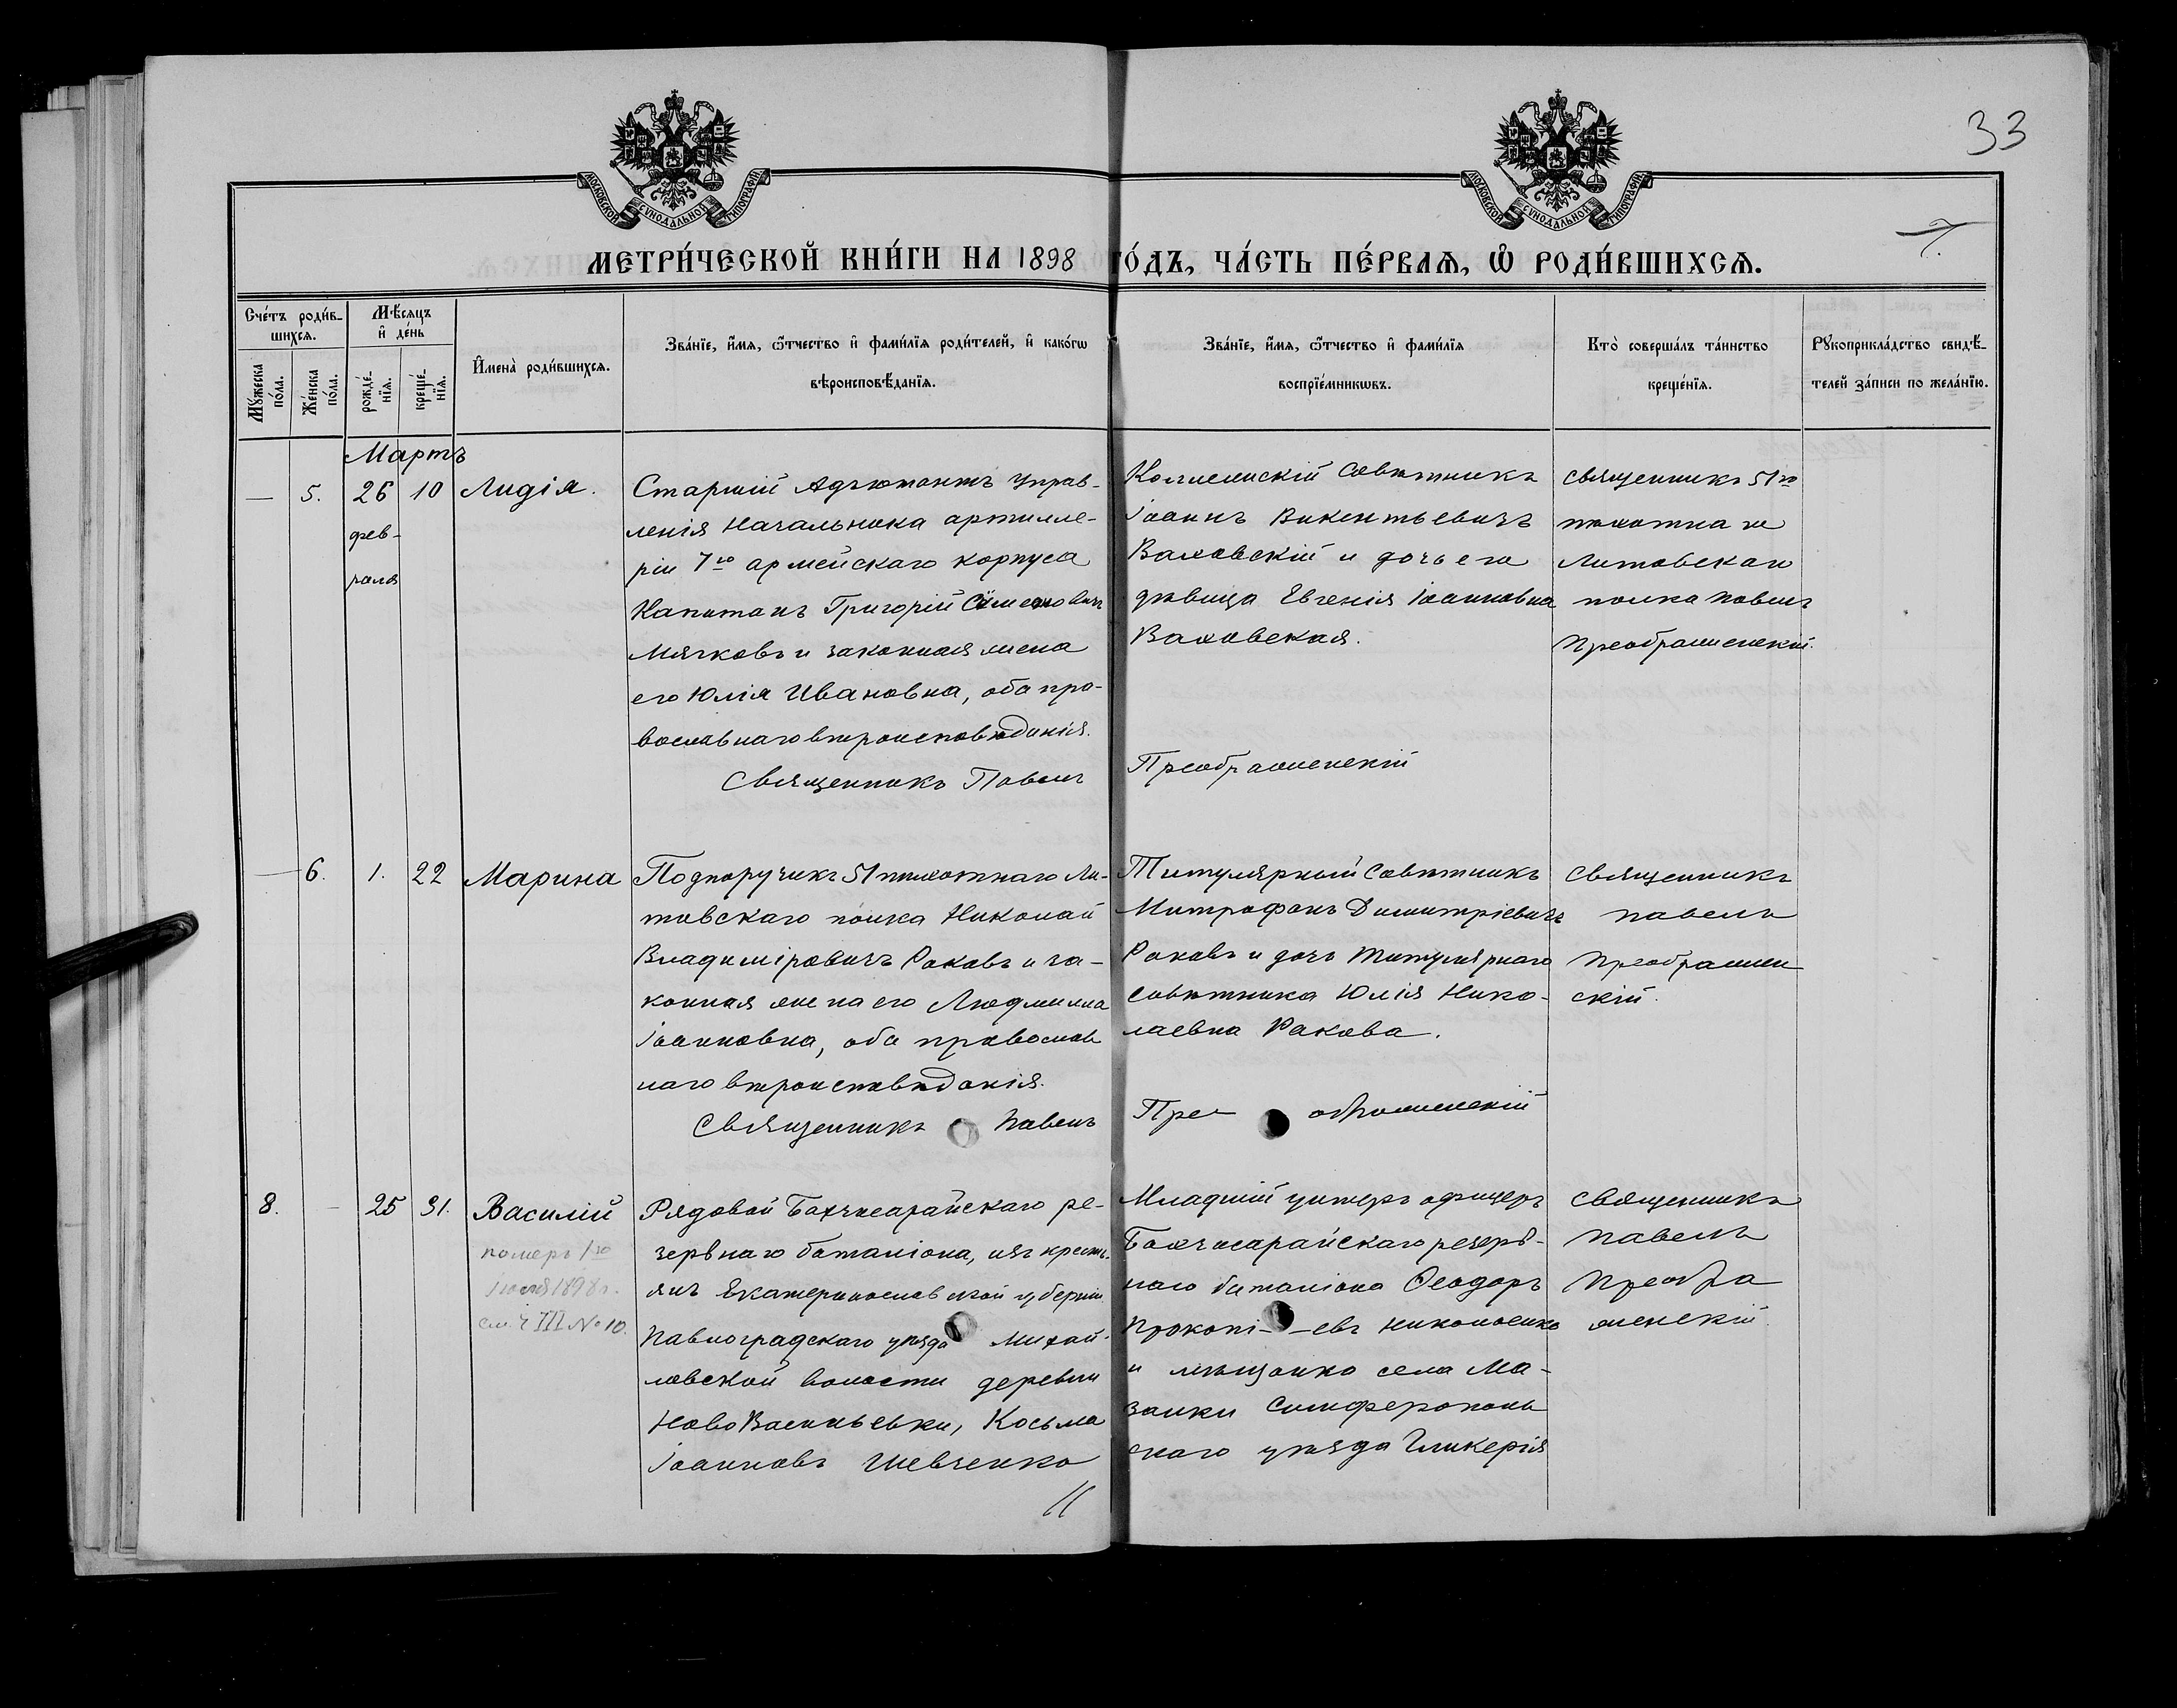 33
7.
МОСКОВСКОЙ СѴНОДАЛЬНОЙ ТИПОГРАФІИ
МОСКОВСКОЙ СѴНОДАЛЬНОЙ ТИПОГРАФІИ
МЕТРИ́ЧЕСКОЙ КНИ́ГИ НА 1898 ГО́ДЪ, ЧА́СТЬ ПЕ́РВАѦ, Ѽ РОДИ́ВШИХСѦ.
Сче́тъ роди́в-
шихсѧ.
Мꙋ́жеска по́ла.
Же́нска по́ла.
Мѣ́сѧцъ
и҆ де́нь
рожде́-нїѧ.
креще́-нїѧ.
И҆мена̀ роди́вшихсѧ.
Зва́нїе, и҆́мѧ, ѻ҆́тчество и҆ фами́лїѧ роди́телей, и҆ како́гѡ
вѣроисповѣ́данїѧ.
Зва́нїе, и҆́мѧ, ѻ҆́тчество и҆ фами́лїѧ
воспрїе́мникѡвъ.
Кто̀ соверша́лъ та́инство
креще́нїѧ.
Рꙋкоприкла́дство свидѣ́-
телей за́писи по жела́нїю.
Мартъ
— 5. 26 10 Лидія.
фев-
раля
Старшій Адъютантъ Управ-
ленія Начальника артилле-
ріи 7го армейскаго корпуса
Капитанъ Григорій Симеоновичъ
Мячковъ и законная жена
его Юлія Ивановна, оба пра-
вославнаго вѣроисповѣданія.
Священникъ Павелъ Преображенскій
Коллежскій Совѣтникъ
Іоаннъ Викентьевичъ
Валовскій и дочь его
дѣвица Евгенія Іоанновна
Валовская.
Священникъ 51го
пѣхотнаго
Литовскаго
полка Павелъ
Преображенскій.
— 6. 1. 22 Марина
Подпоручикъ 51 пѣхотнаго Ли-
товскаго полка Николай
Владиміровичъ Раковъ и за-
конная жена его Людмилла
Іоанновна, оба православ
наго вѣроисповѣданія.
Священникъ Павелъ Преображенскій
Титулярный Совѣтникъ
Митрофанъ Димитріевичъ
Раковъ и дочь Титулярнаго
Совѣтника Юлія Нико-
лаевна Ракова.
Священникъ
Павелъ
Преображен
скій.
8. — 25 31. Василій
померъ 1го
1898 г.
см. ч III № 10.
Рядовой Бахчисарайскаго ре-
зервнаго баталіона, изъ кресть-
янъ Екатеринославской губерніи
Павлоградскаго уѣзда Михай-
ловской волости деревни
Ново Васильевки, Косьма
Іоанновъ Шевченко
Младшій унтеръ офицеръ
Бахчисарайскаго резерв-
наго баталіона Ѳеодоръ
Прокопі--евъ Николаенко
и мѣщанка села Ма-
занки Симферополь
скаго уѣзда Гликерія
Священникъ
Павелъ
Преобра
женскій.